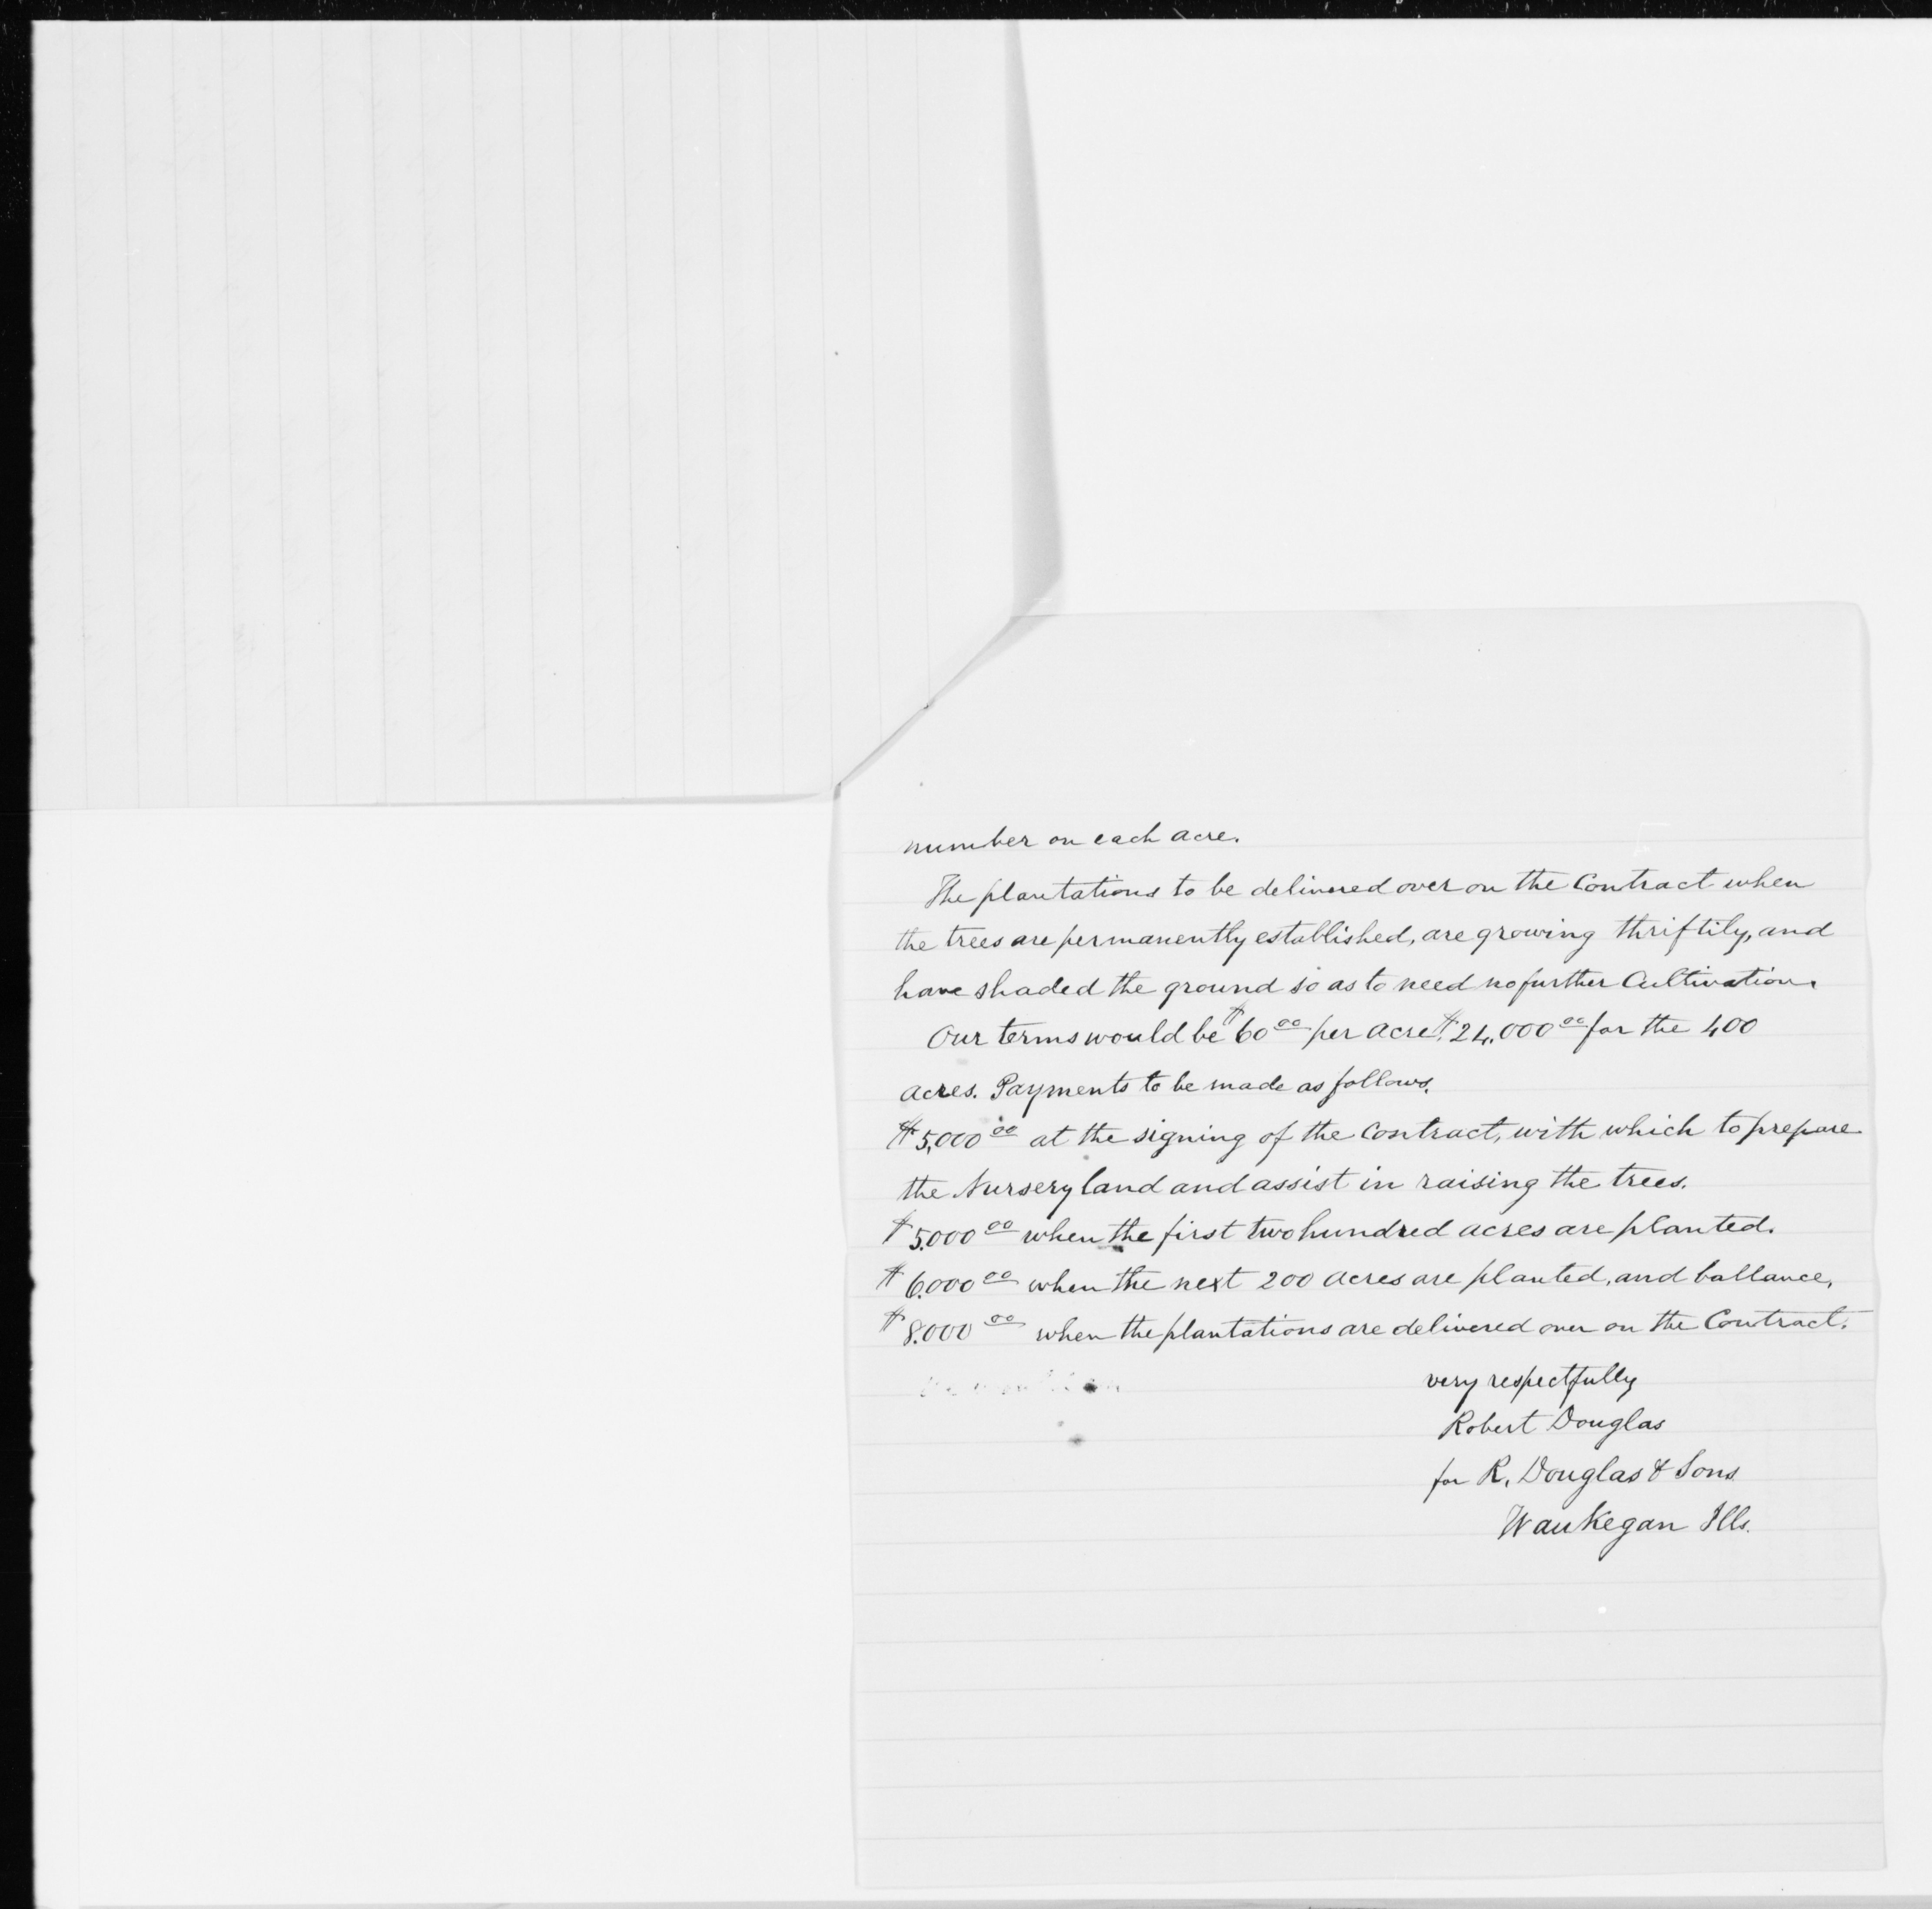 number on each acre.
The plantations to be delivered over on the Contract when
the trees are permanently established, are growing thriftily, and
have shaded the ground so as to need no further Cultivation.
Our terms would be $60.00 per acre. $24,000.00 for the 400
acres. Payments to be made as follows.
$5,000.00 at the signing of the Contract, with which to prepare
the Nursery land and assist in raising the trees.
$5.000.00 when the first two hundred acres are planted.
$6.000.00 when the next 200 acres are planted, and ballance,
$8.000.00 when the plantations are delivered over on the Contract.
very respectfully
Robert Douglas
for R. Douglas & Sons
Waukegan Ills.